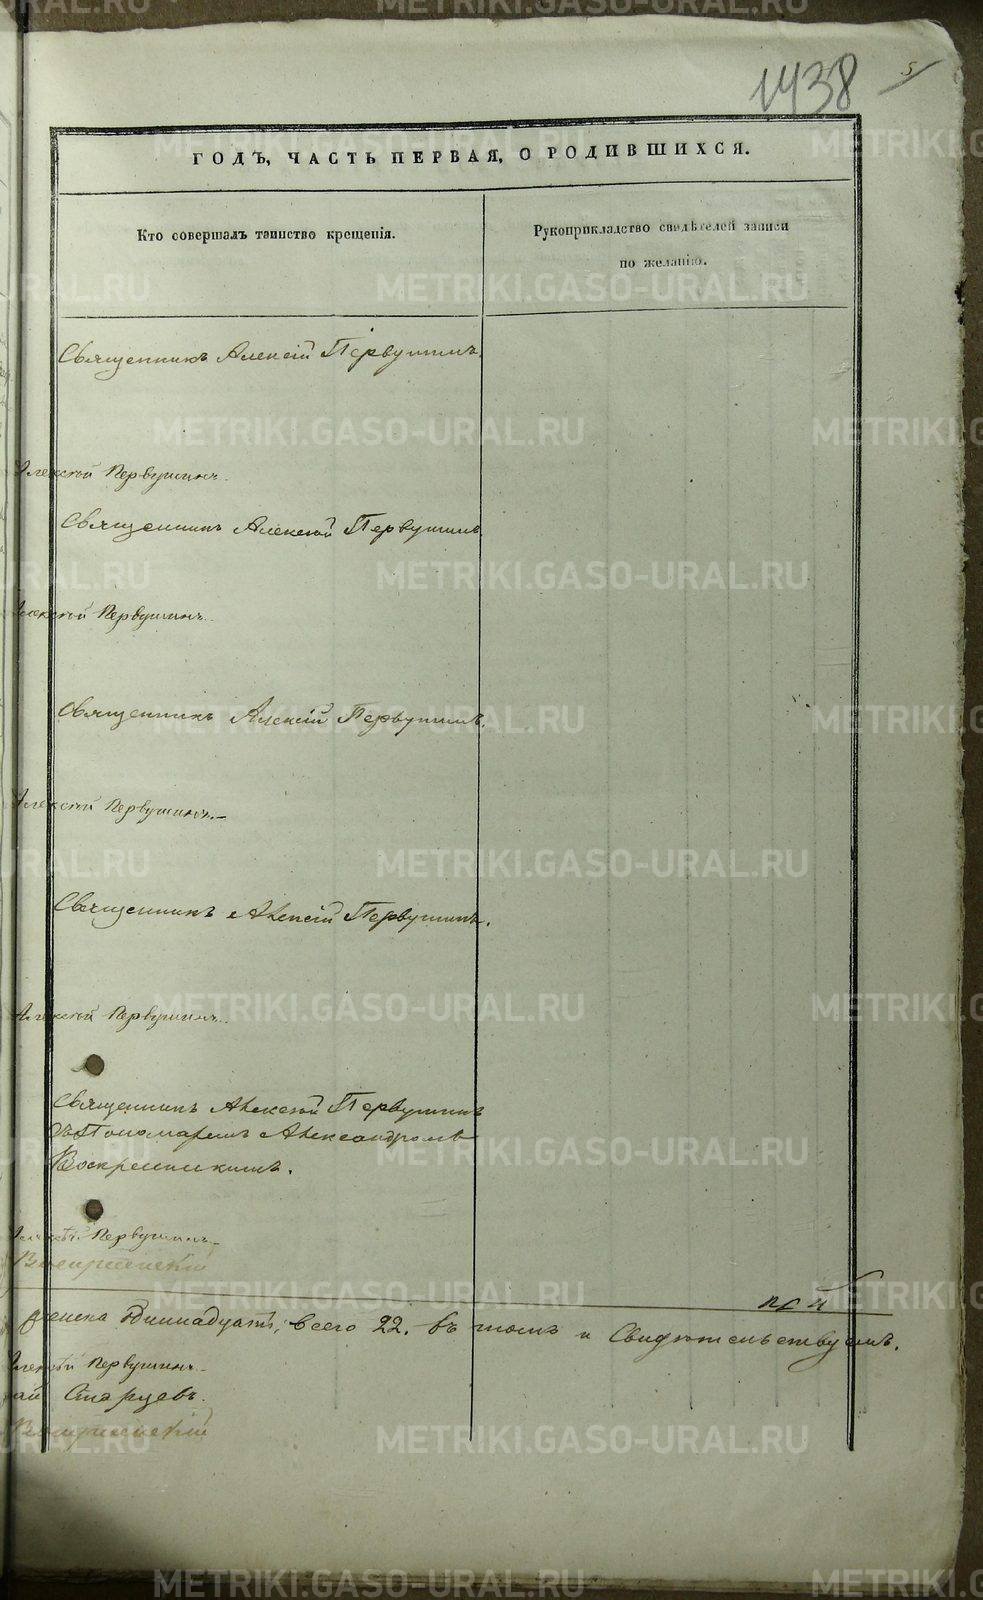 1438
5
ГОДЪ, ЧАСТЬ ПЕРВАЯ, О РОДИВШИХСЯ.
Кто совершалъ таинство крещенія.
Рукоприкладство свидѣтелей записи
по желанію.
Священникъ Алексій Первушинъ.
Алексѣй Первушинъ.
Священникъ Алексѣй Первушинъ.
Алексѣй Первушинъ.
Священникъ Алексій Первушинъ.
Алексѣй Первушинъ.
Священникъ Алексій Первушинъ.
Алексѣй Первушинъ.
Священникъ Алексѣй Первушинъ
съ Пономаремъ Александромъ
Воскресенскимъ.
Первушинъ
Воскресенскій
женска Одиннадцать, всего 22. въ томъ и Свидѣтельствуемъ.
Первушинъ
Старцевъ.
Воскресенскій
METRIKI.GASO-URAL.RU